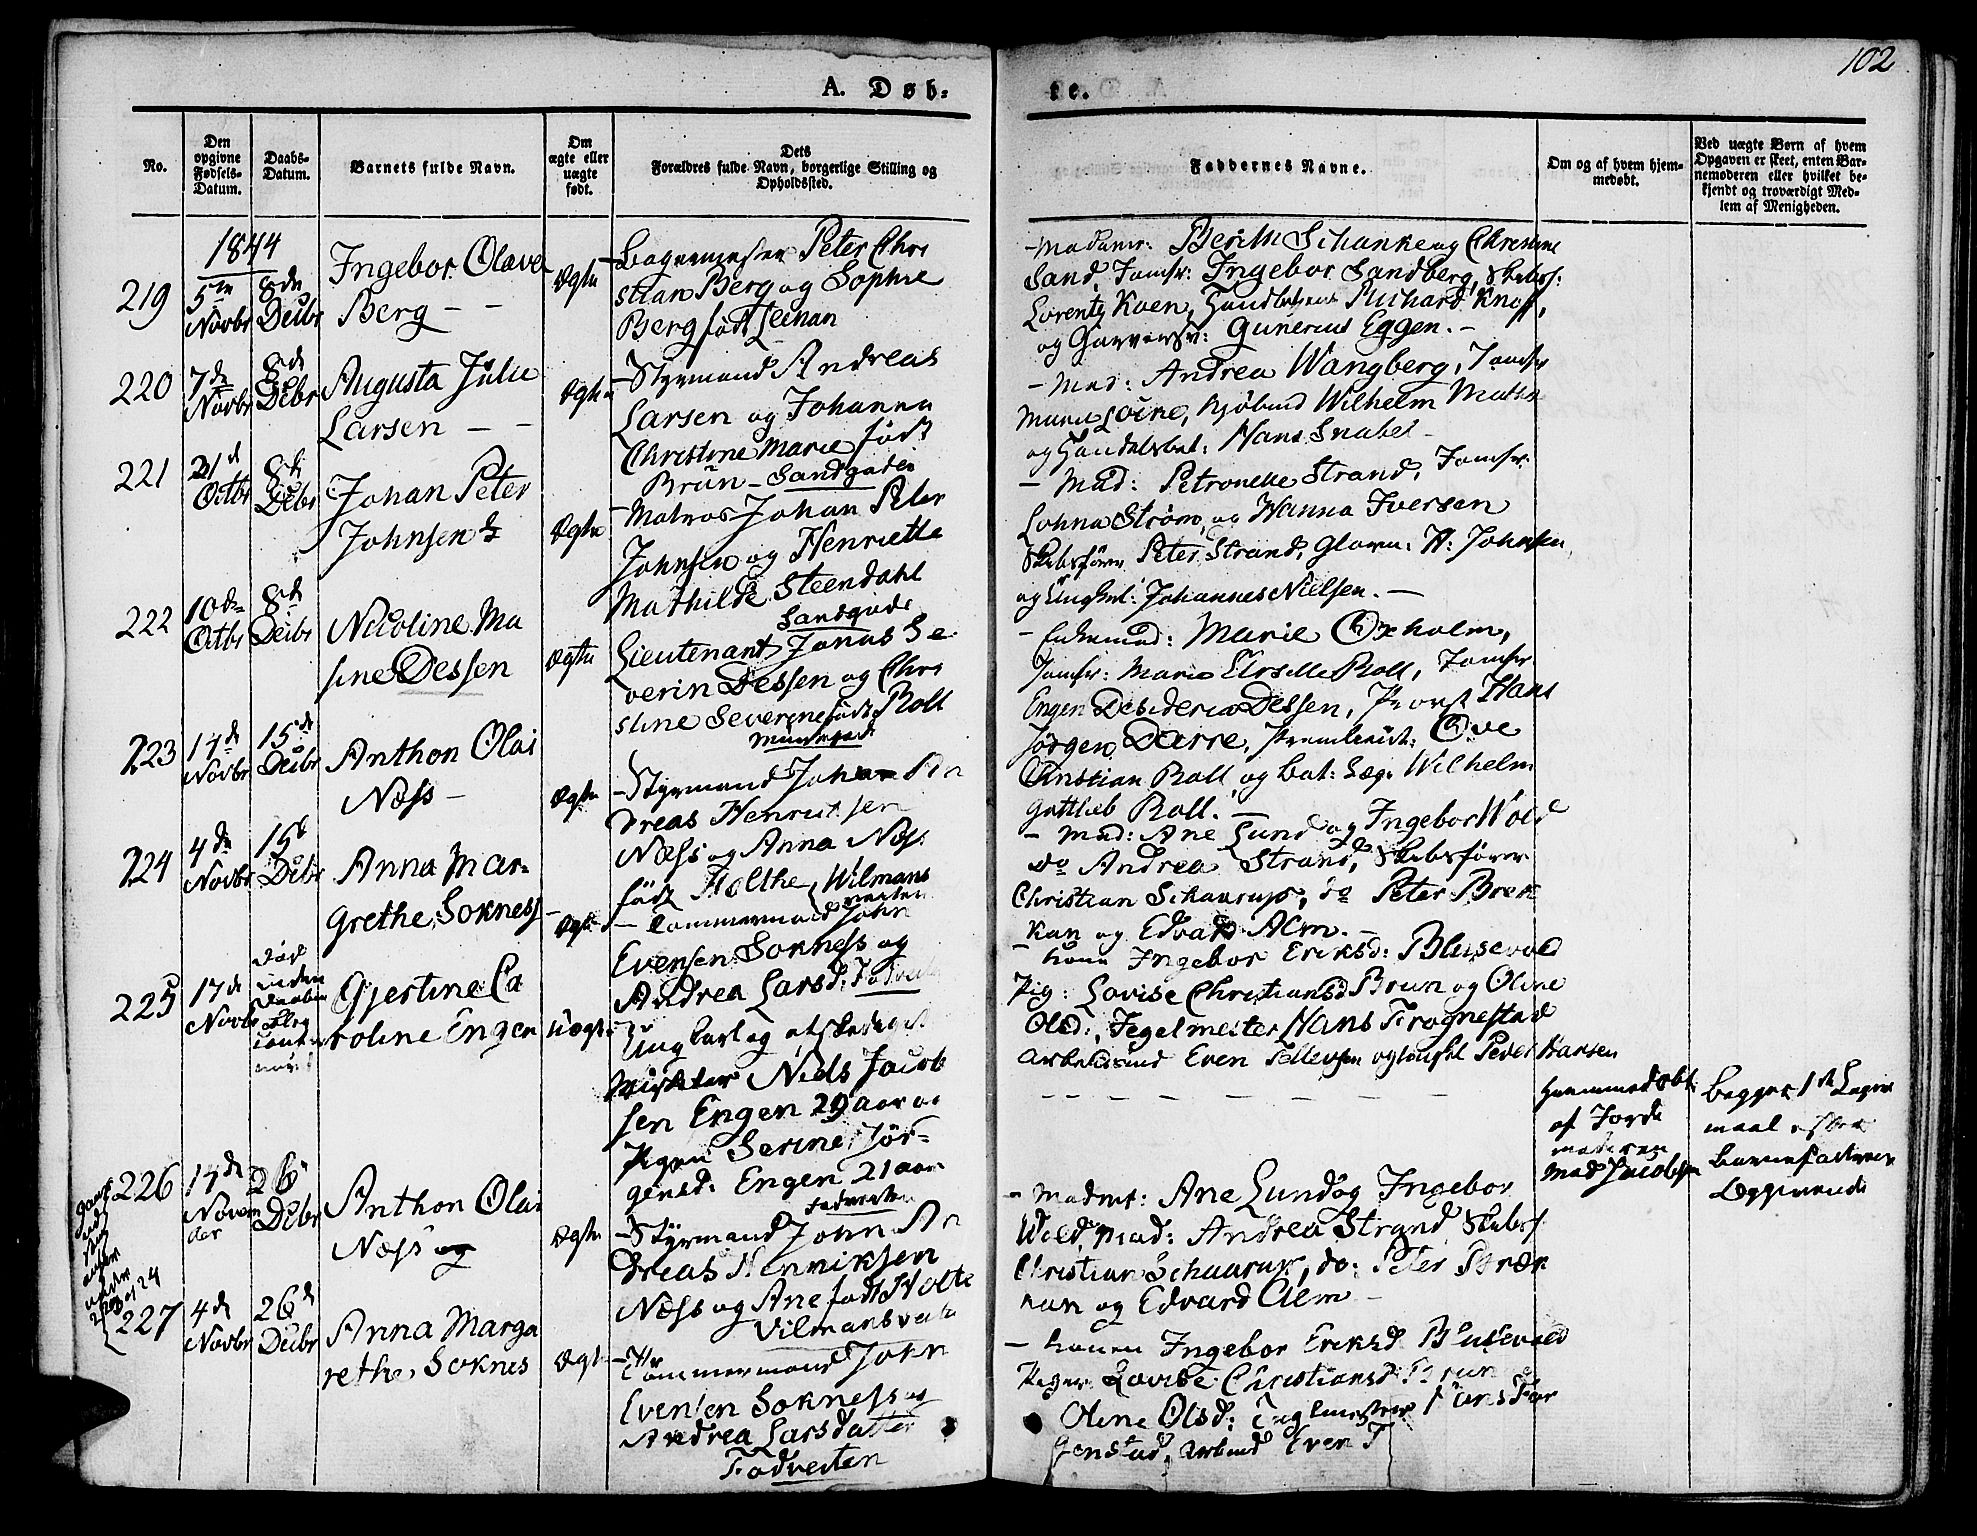 102
A. Døb-
te.
No.
Den
opgivne
Fødsels-
Datum.
Daabs-
Datum.
Barnets fulde Navn.
Om
ægte eller
uægte
født.
Dets
Forældres fulde Navn, borgerlige Stilling og
Opholdssted.
Faddernes Navne.
Om og af hvem hjem-
medøbt.
Ved uægte Børn af hvem
Opgaven er skeet, enten Bar-
nemoderen eller hvilket be-
kjendt og troværdigt Med-
lem af Menigheden.
1844
219
Novbr
8de
Decbr
Ingebor Olave
Berg - -
Ægte
Peter Chri
stian Berg og Sophie
Berg født
- Madamr: Berith Schanke og Christine
Sand, Jomfr: Ingebor Sandberg, Skibsf:
Lorentz Koen, Richard Knoff,
og Gunerius Eggen. -
220
7de
Novbr
8de
Decbr
Augusta Julie
Larsen - -
Ægte
- Styrmand Andreas
Larsen og Johanna
Christine Marie født
Brün - Sandgaden
- Mad: Andrea Wangberg, Jomfr
Marie Wilhelm
og Hans Snabel -
221
21d
Octbr
8de
Decbr
Johan Peter
Johnsen
Ægte
- Matros Johan Peter
Johnsen og Henriette
Mathilde Steendahl
Sandgade
- Mad: Petronelle Strand, Jomfr:
Strøm, og Hanna Iversen
Skibsfører Peter Strand, H: Johnsen
og Ungkl: Johannes Nielsen. -
222
10de
Octbr
8de
Decbr
Nicoline Ma
sine Dessen
Ægte
Lieutenant Jonas Se
verin Dessen og Chri
stine Severine født Roll
- Enkemad: Marie Oxholm,
Jomfr: Marie Roll, Jomfr
Engen Desideria Dessen, Provst Hans
Jørgen Darre, Premlieut: Ove
Christian Roll, og Bat: Læge Wilhelm
Gottlieb Roll. -
223
14de
Novbr
15de
Decbr
Anthon Olai
Næss -
Ægte
- Styrmand Johan An
dreas Henriksen
Næss og Anna Næs
født Holthe, Wilmans
veiten
- Mad: Ane Lund og Ingebor Wold
do Andrea Strand, Skibsfører
Christian Schaarup, do Peter Bræk
kan og Edvard Alm. -
224
4de
Novbr
15d
Decbr
Anna Mar-
grethe Sokness -
Ægte
- Tømmermand John
Evensen Sokness og
Andrea Larsd:
- Kone Ingebor Eriksd: Blusevold
Pig: Lovise Christiansd Brun og Oline
Olsd:, Tegelmester Hans Frognestad
Arbeidsmd Even Tellevsen og Peder Hansen
225
17de
Novbr
Død
inden
Gjertine Ca
roline Engen
Uægte
Ungkarl og afskediget
Niels Jacob
sen Engen 29 aar og
Pigen Serine Jør-
gensd: Engen 21 aar
Fadveiten
- - - - - - - -
Hjemmedøbt
af Jorde
moderen
Mad Jacobsen
Begges 1ste Leger
maal efter
Barnefaderens
Opgivende
226
14de
Novem
der
26d
Decbr
Anthon Olai
Næss og
Ægte
- Styrmand John An
dreas Henriksen
Næss og Ane født Holte
Vilmansveita
- Madmr: Ane Lund og Ingebor
Wold, Mad: Andrea Strand, Skibsf.
Christian Schaarup, do: Peter Bræk
kan og Edvard Alm -
227
4de
Novbr
26d
Decbr
Anna Marga
rethe Soknes
Ægte
- Tømmermand John
Evensen Sokness og
Andrea Larsdatter
Fadveiten
- Konen Ingebor Eriksd Blusevold
Piger Lovise Christiansd Brun
Oline Olsd: Teglmester Hans For
genstad, Arbmd Even T